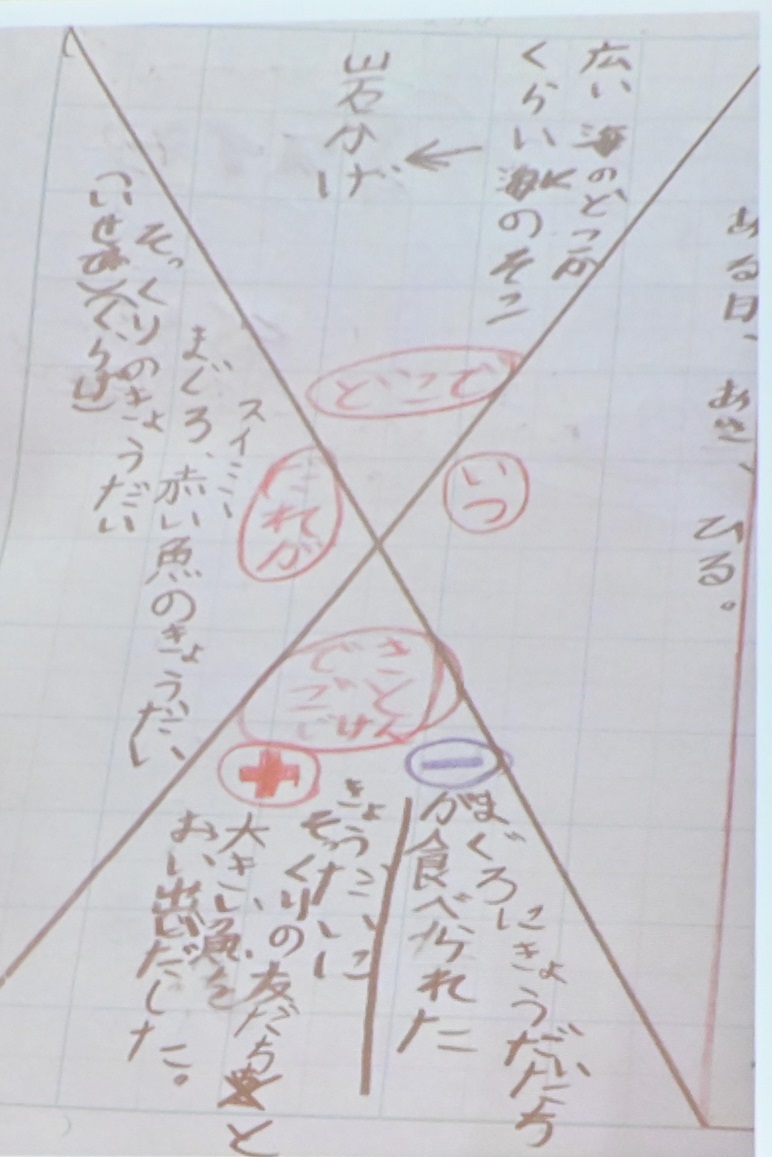 ある日、あさ、ひる。
いつ
広い海のどこか
くらい海のそこ
岩かげ
どこで
だれが
スイミー
まぐろ、赤い魚のきょうだい
そっくりのきょうだい
(いせえび)(くらげ)
できごと
じけん
−
まぐろにきょうだいたち
が食べられた
+
きょうだいに
そっくりの友だちと
大きい魚を
おい出だした。